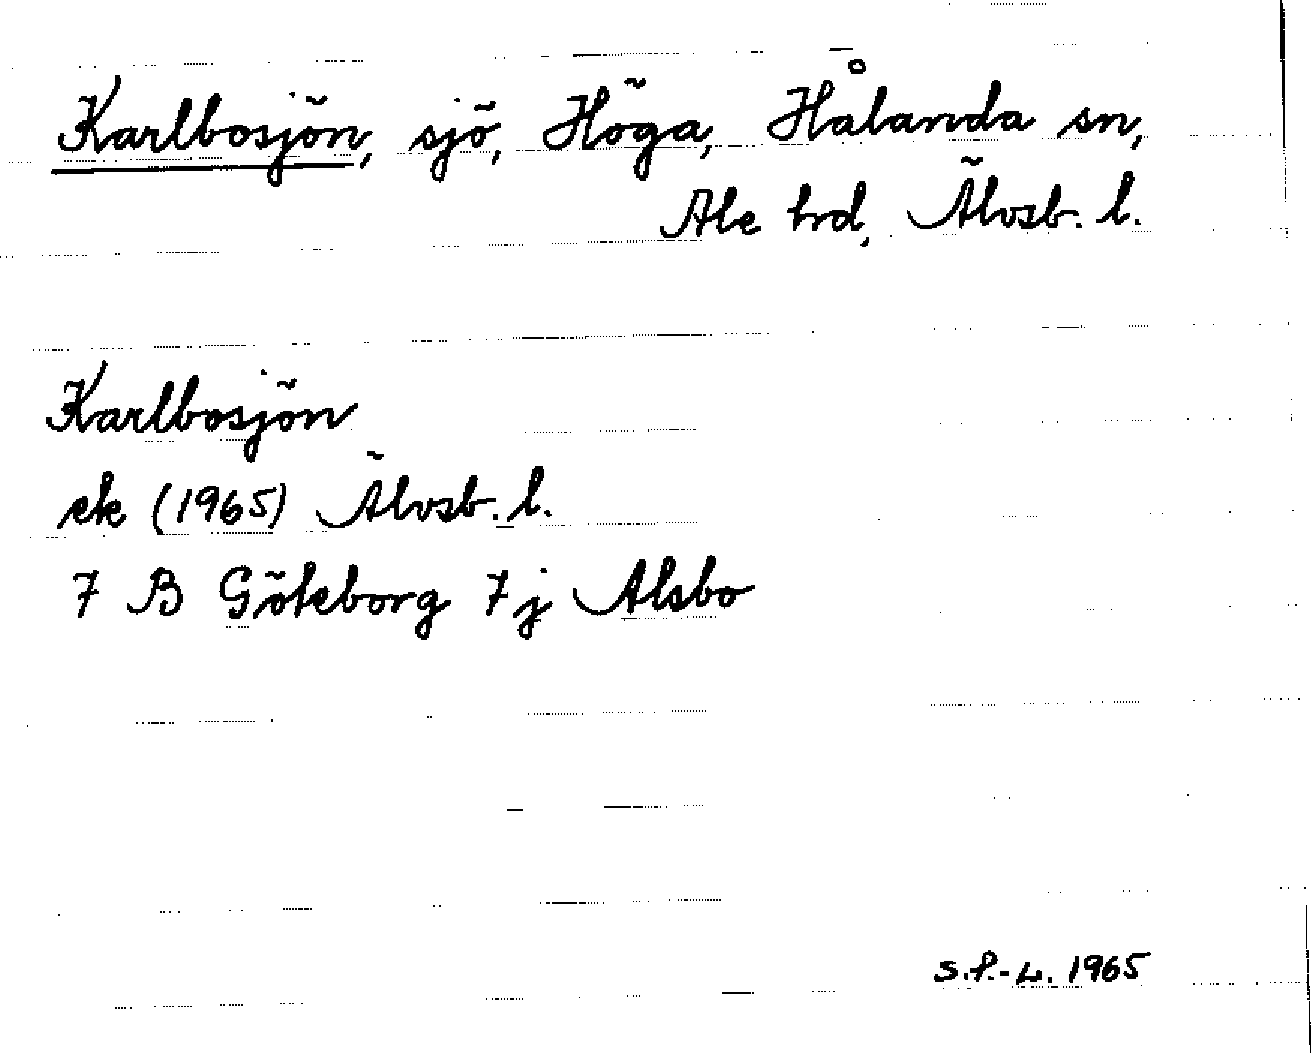 Karlbosjön, sjö, Höga, Hålanda sn,
Ale hd, Älvsb. l.
Karlbosjön
ek (1965) Älvsb. l.
7 B Göteborg 7 j Alsbo
S.P.-L. 1965